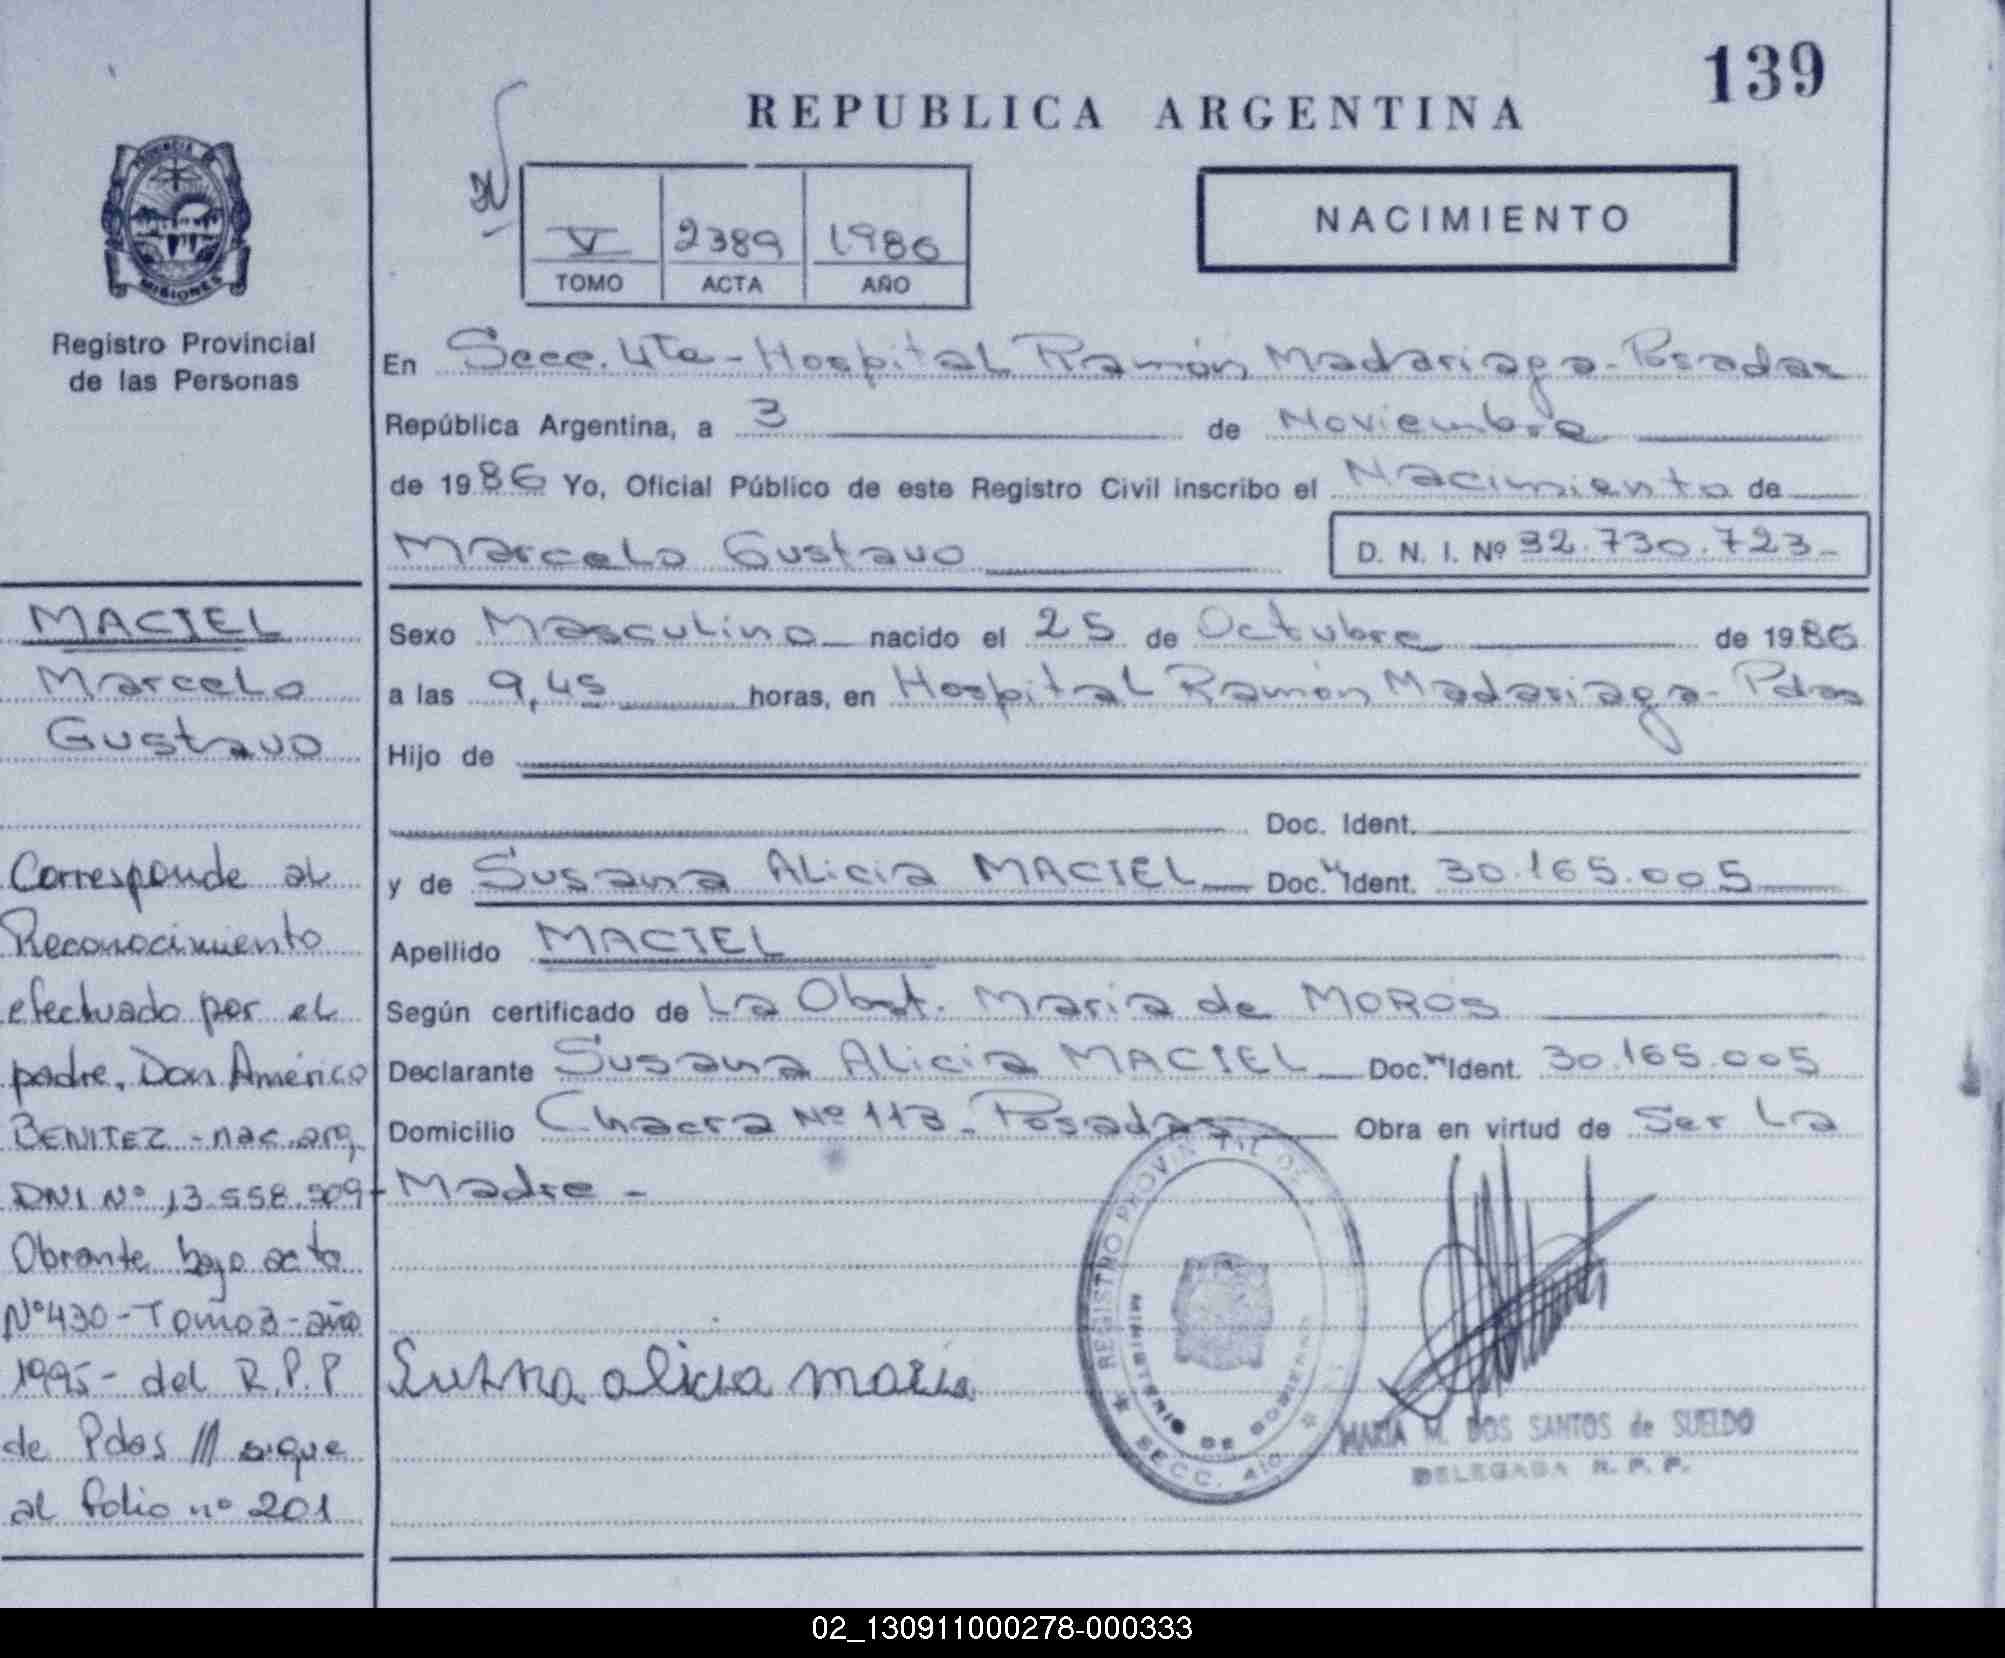 139
REPUBLICA ARGENTINA
PROVINCIA DE
MISIONES
Registro Provincial
de las Personas
V 2389 1986
TOMO ACTA AÑO
NACIMIENTO
En Secc. 4ta - Hospital Ramón Madariaga - Posadas
República Argentina, a 3 de Noviembre
de 1986 Yo, Oficial Público de este Registro Civil inscribo el Nacimiento de
Marcelo Gustavo D. N. I. Nº 32.730.723-
Sexo Masculino nacido el 25 de Octubre de 1986
a las 9,45 horas, en Hospital Ramón Madariaga - Pdas
Hijo de
Doc. Ident.
y de Susana Alicia MACIEL Doc. Ident. 30.165.005
Apellido MACIEL
Según certificado de La Obst. Maria de MOROS
Declarante Susana Alicia MACIEL Doc. Ident. 30.165.005
Domicilio Chacra Nº 113 - Posadas Obra en virtud de Ser La
Madre -
MACIEL
Marcelo
Gustavo
Corresponde al
Reconocimiento
efectuado por el
padre, Don Américo
BENITEZ - nac. arg.
DNI Nº 13.558.909-
Obrante bajo acta
Nº 430 - Tomo 3 - año
1995 - del R.P.P
de Pdas /// sigue
al folio nº 201
Susana alicia maciel
REGISTRO PROVINCIAL DE
MINISTERIO DE GOBIERNO
SECC. 4ta
MARIA M. DOS SANTOS de SUELDO
DELEGADA R. P. P.
02_130911000278-000333